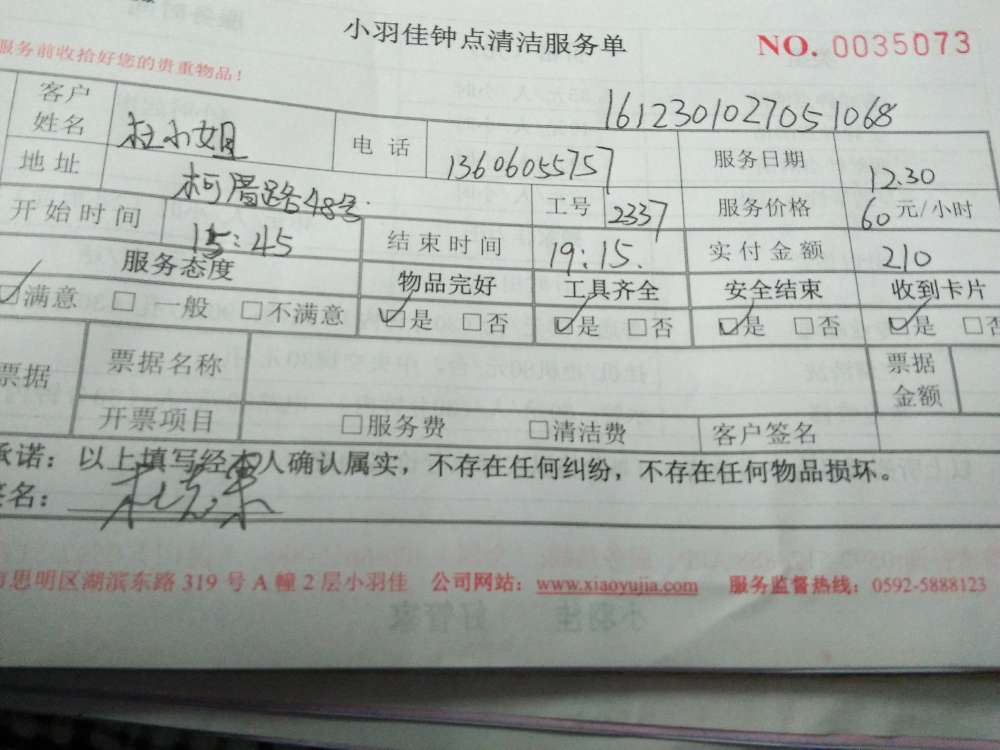 小羽佳钟点清洁服务单 NO. 0035073
服务前收拾好您的贵重物品!
1612301027051068
客户姓名 杜小姐 电话 13606055757 服务日期 12.30
地址 柯厝路48号 工号 2337 服务价格 60元/小时
开始时间 15:45 结束时间 19:15. 实付金额 210
服务态度 物品完好 工具齐全 安全结束 收到卡片
☑满意 □一般 □不满意 ☑是 □否 ☑是 □否 ☑是 □否 ☑是 □否
票据 票据名称 票据金额
开票项目 □服务费 □清洁费 客户签名
承诺:以上填写经本人确认属实,不存在任何纠纷,不存在任何物品损坏。
签名:
思明区湖滨东路 319 号 A 幢 2 层小羽佳 公司网站:www.xiaoyujia.com 服务监督热线:0592-5888123